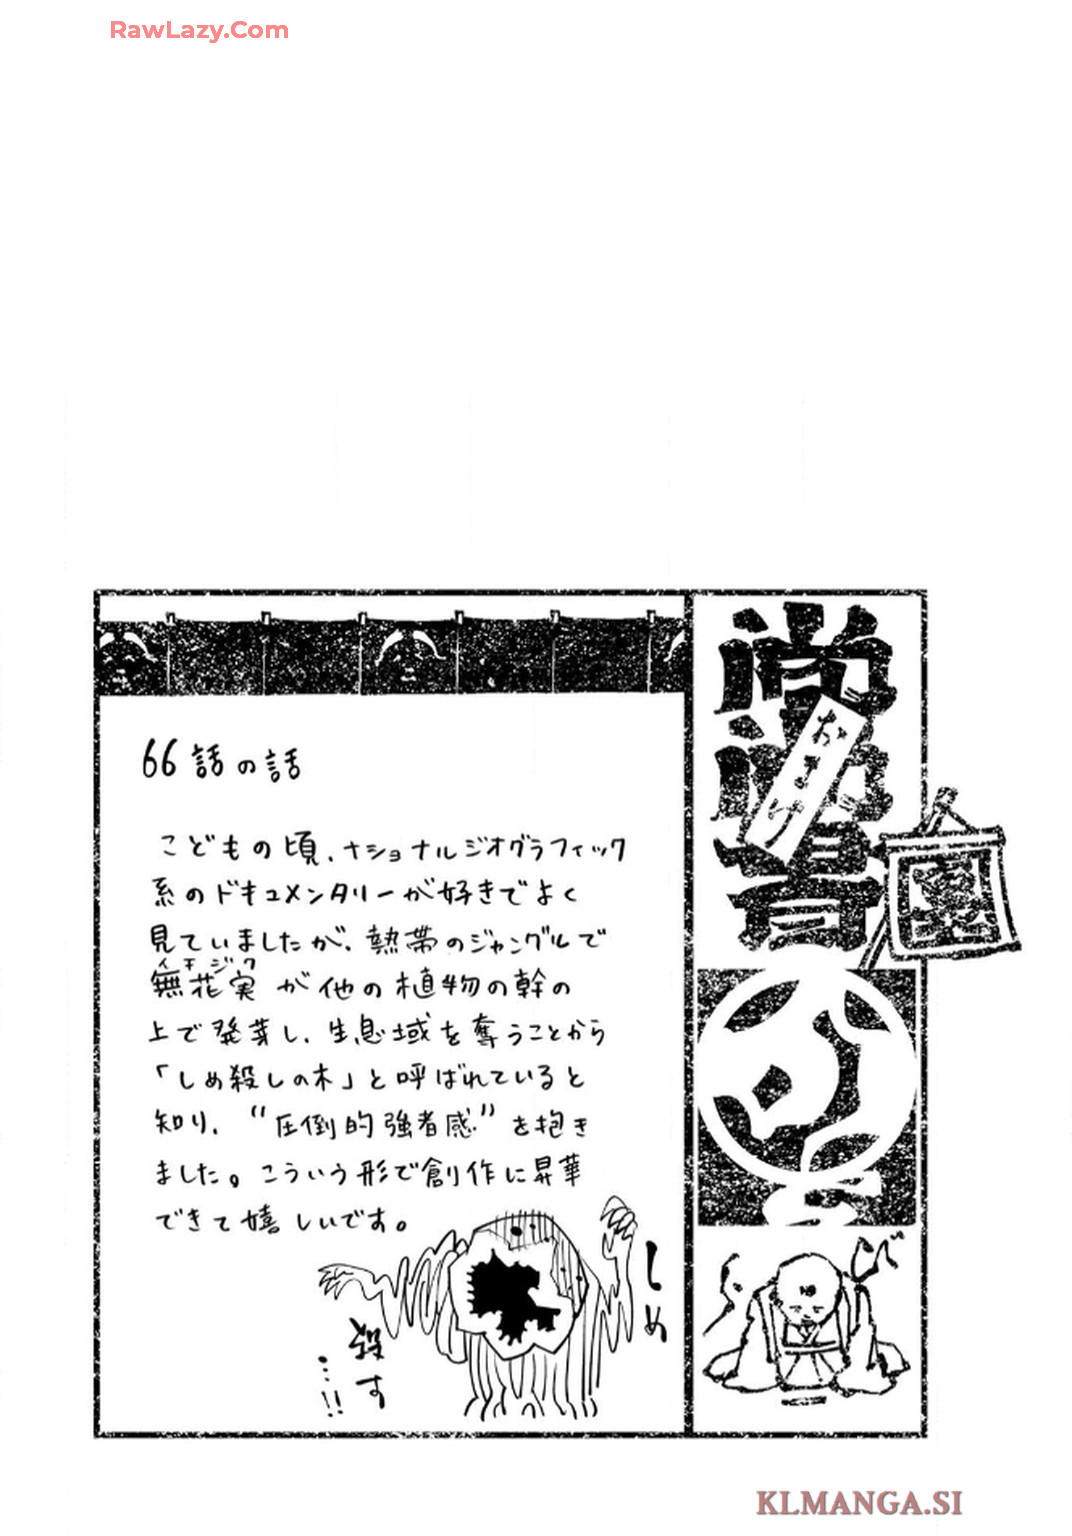 RawLazy.Com
66話の話
こどもの頃、ナショナルジオグラフィック
系のドキュメンタリーが好きでよく
見ていましたが、熱帯のジャングルで
イチジク
無花実が他の植物の幹の
上で発芽し、生息域を奪うことから
「しめ殺しの木」と呼ばれていると
知り、“圧倒的強者感”を抱き
ました。こういう形で創作に昇華
できて嬉しいです。
しめ
殺す
…!!
おまけ
KLMANGA.SI